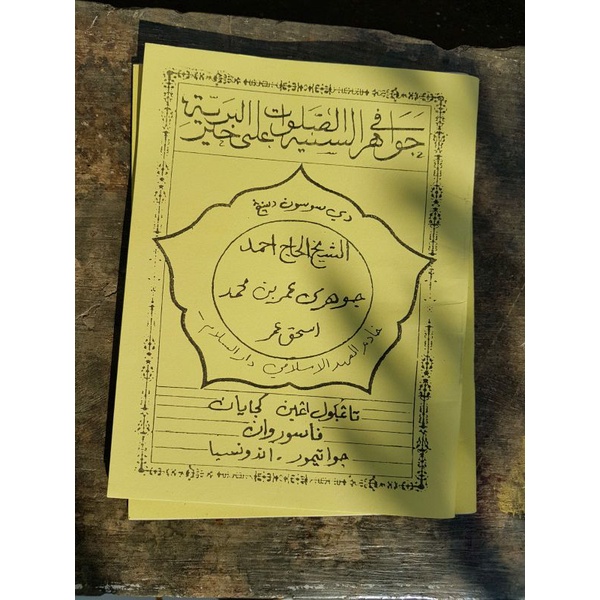 جواهر السنية في الصلوات على خير البرية
دي سوسون دينيڠ
الشيخ الحاج احمد
جوهري عمر بن محمد
اسحق عمر
خادم المعهد الاسلامي دار السلام
تاڠكول اڠين كجايان
ڤاسوروان
جوا تيمور - اندونسيا